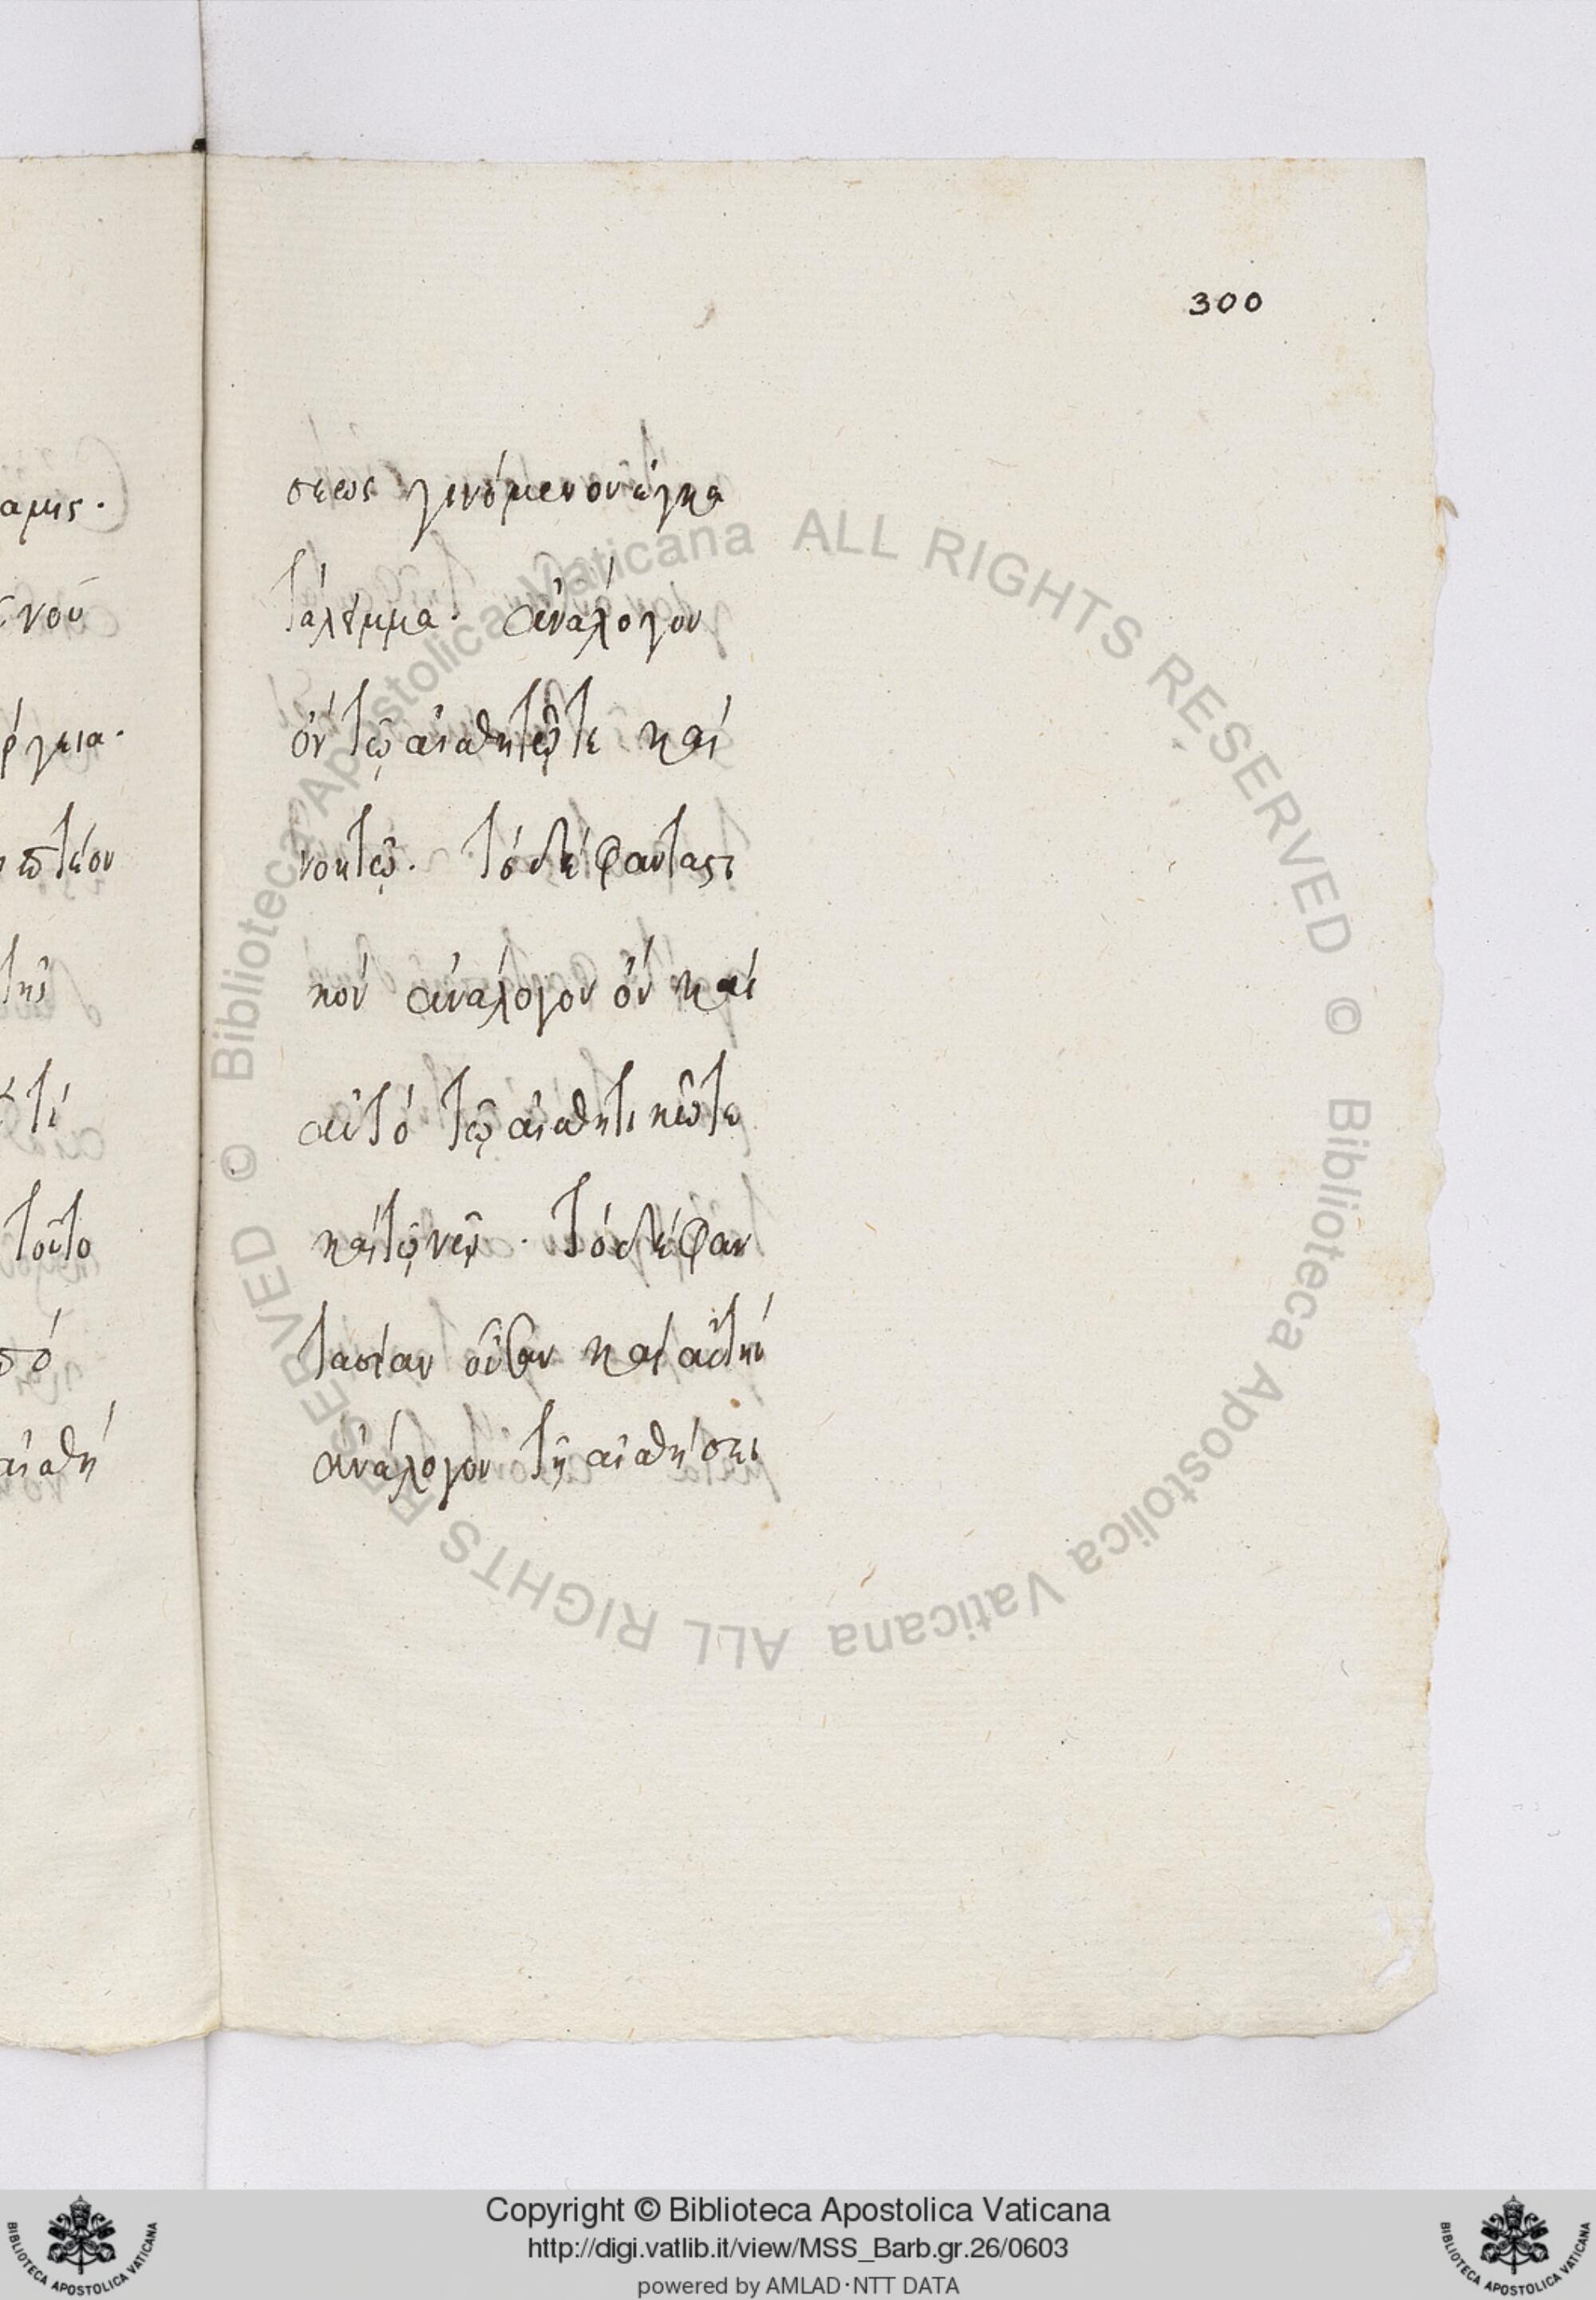 300
αμις.
νου
τῆς
τί
τοῦτο
αἰσθή
σεως γινόμενον ἐγκα
τάλειμμα. ἀνάλογον
ὂν τῷ αἰσθητῷ τε καὶ
νοητῷ. τὸ δὲ φαντασι
κὸν ἀνάλογον ὂν καὶ
αὐτὸ τῷ αἰσθητικῷ τε
καὶ τῷ νῷ. τὸ δὲ φαν
τασίαν οὖσαν καὶ αὐτὴν
ἀνάλογον τῇ αἰσθήσει
© Biblioteca Apostolica Vaticana ALL RIGHTS RESERVED © Biblioteca Apostolica Vaticana ALL RIGHTS RESERVED
Copyright © Biblioteca Apostolica Vaticana
http://digi.vatlib.it/view/MSS_Barb.gr.26/0603
powered by AMLAD·NTT DATA
BIBLIOTECA APOSTOLICA VATICANA
BIBLIOTECA APOSTOLICA VATICANA